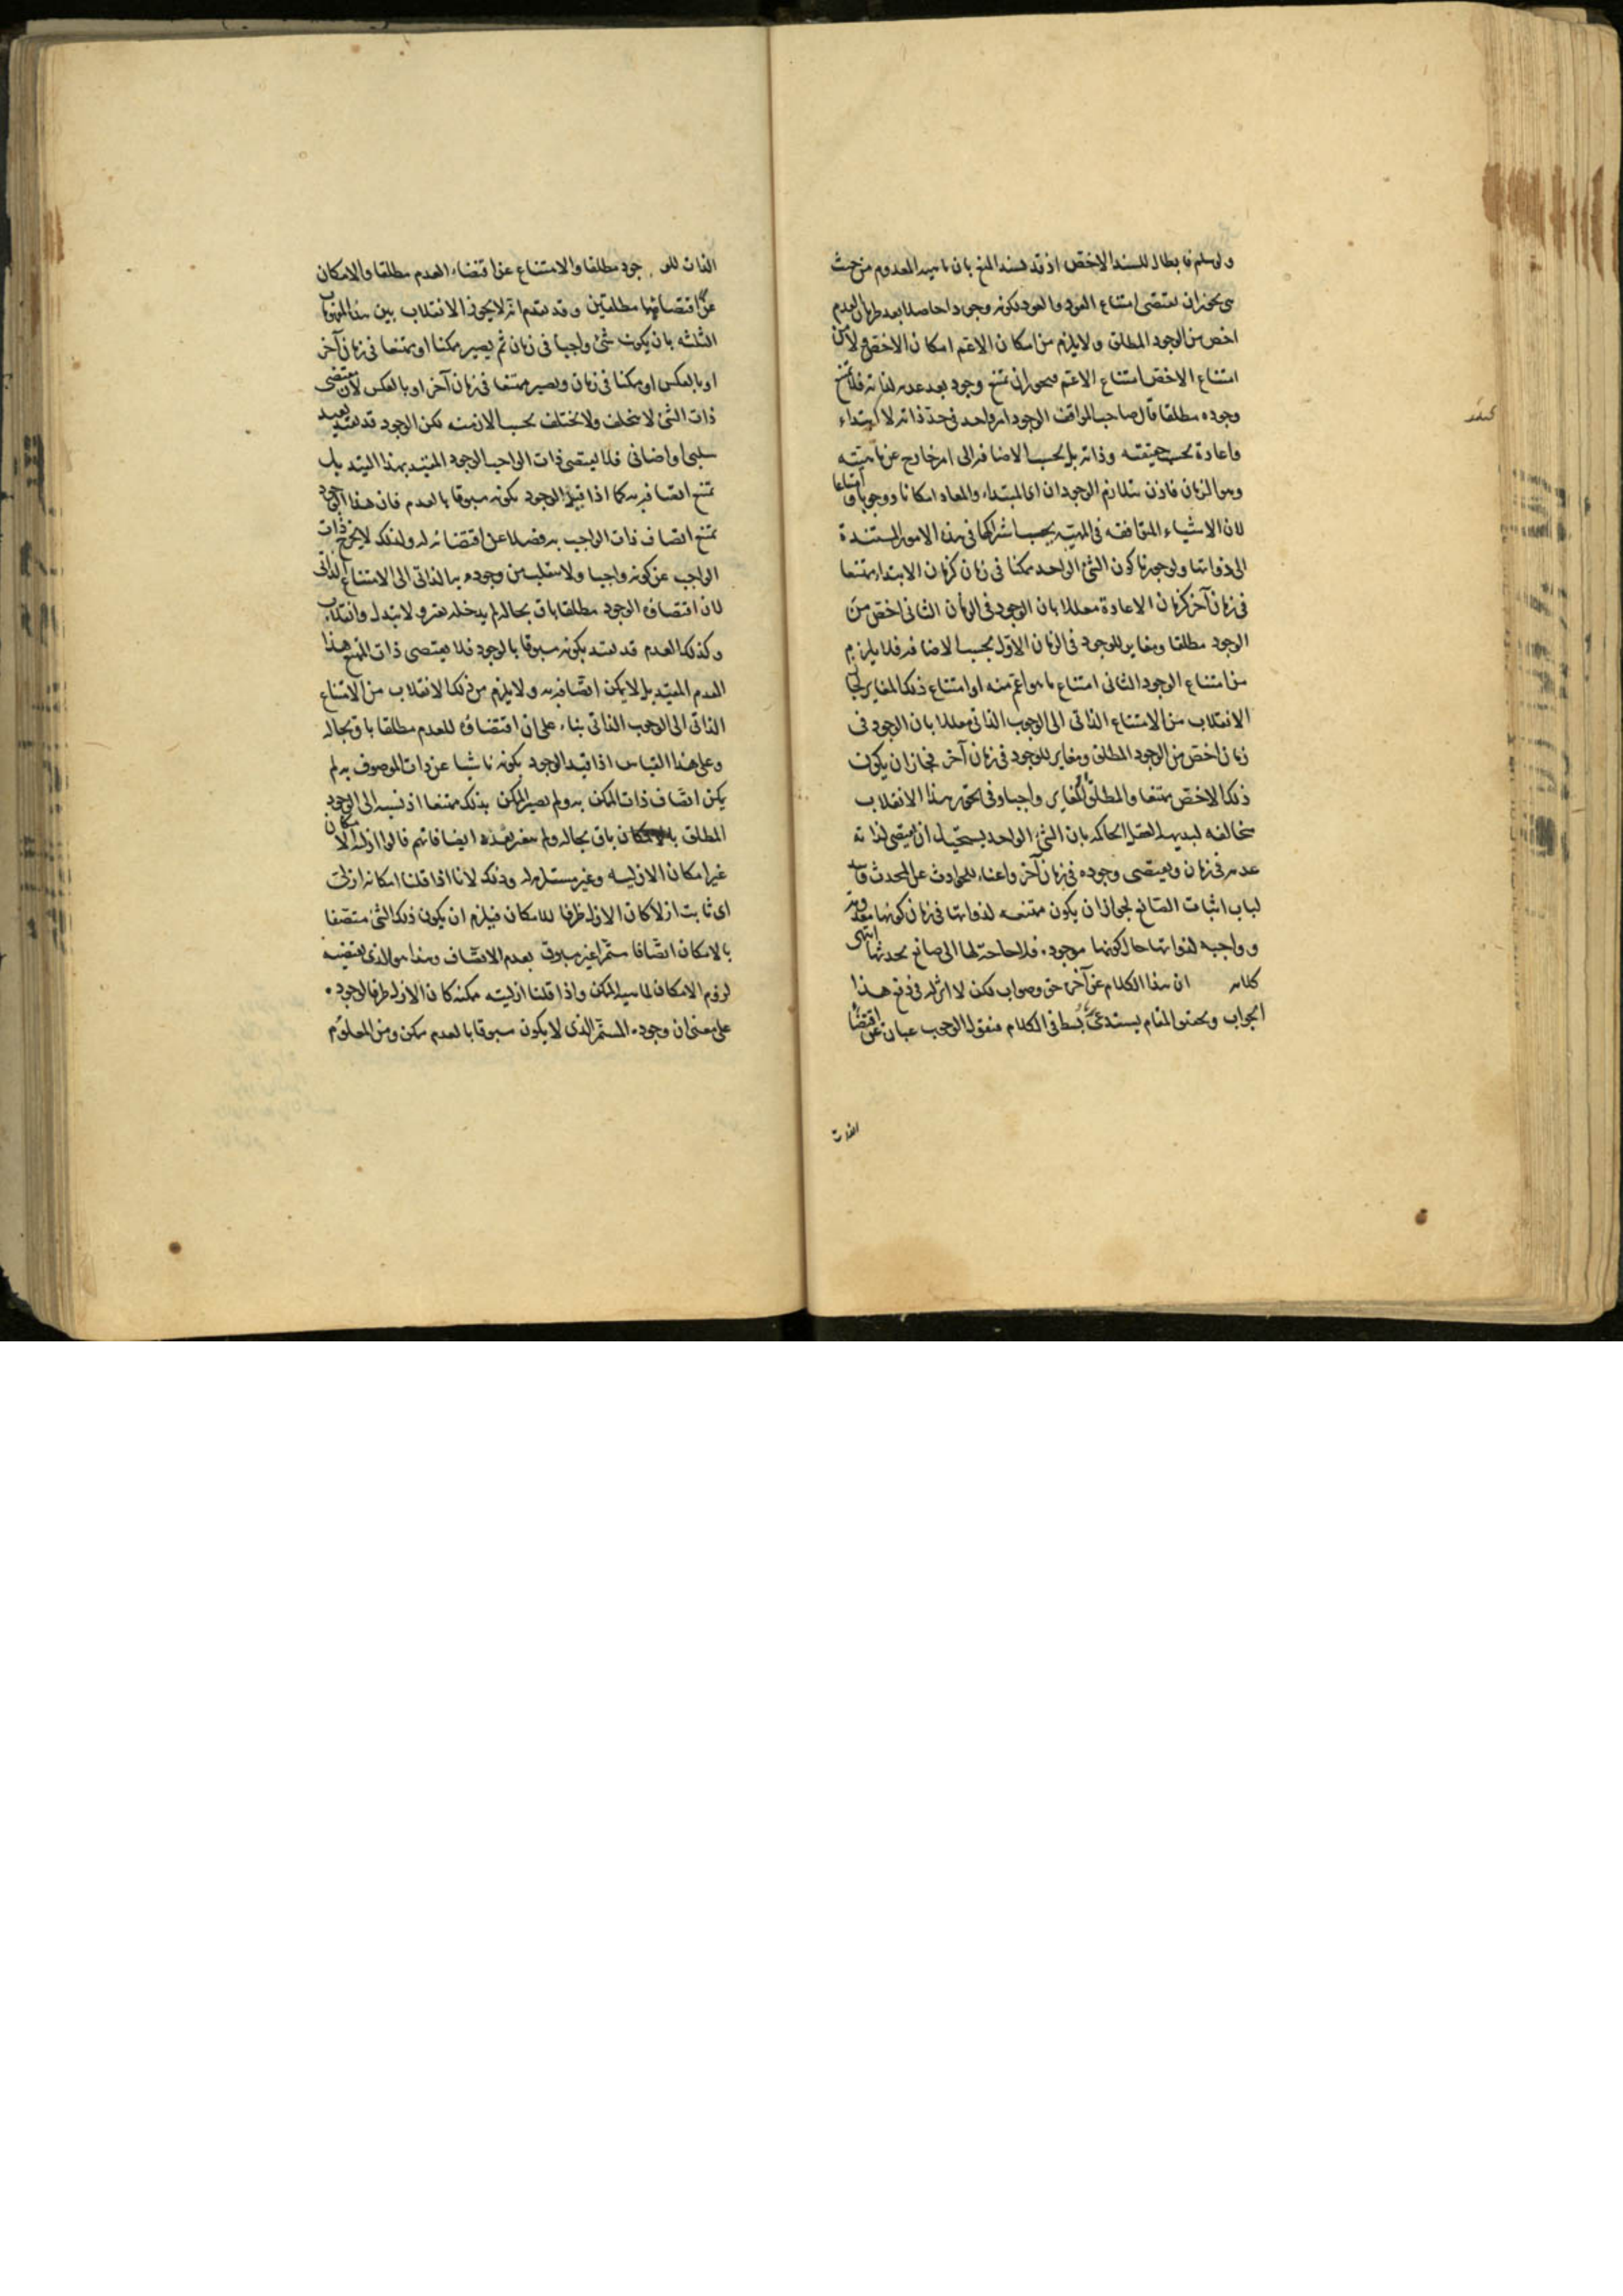 ولو سلم فابطال للسند الاخص اذ قد يسند المنع بان ماهية المعدوم من حيث
هى يجوز ان تقتضى امتناع العود والعود لكونه وجودا حاصلا بعد طريان العدم
اخص من الوجود المطلق ولا يلزم من امكان الاعم امكان الاخص ولا من
امتناع الاخص امتناع الاعم فيجوز ان يمتنع وجوده بعد عدمه لذاته فلا يمتنع
وجوده مطلقا قال صاحب المواقف الوجود امر واحد فى حد ذاته لا ابتداء
واعادة بحسب حقيقته وذاته بل بحسب الاضافة الى امر خارج عن ماهيته
وهو الزمان فاذن يتلازم الوجودان اى المبتداء والمعاد امكانا ووجوبا وامتناعا
لان الاشياء المتوافقة فى المهية يجب اشتراكها فى هذه الامور المستندة
الى ذواتها ولو جوزنا كون الشئ الواحد ممكنا فى زمان كزمان الابتداء ممتنعا
فى زمان آخر كزمان الاعادة معللا بان الوجود فى الزمان الثانى اخص من
الوجود مطلقا ومغاير للوجود فى الزمان الاول بحسب الاضافة فلا يلزم
من امتناع الوجود الثانى امتناع ما هو اعم منه او امتناع ذلك المغاير لجاز
الانقلاب من الامتناع الذاتى الى الوجوب الذاتى معللا بان الوجود فى
زمان اخص من الوجود المطلق ومغاير للوجود فى زمان آخر فجاز ان يكون
ذلك الاخص ممتنعا والمطلق او المغاير واجبا وفى تجويز هذا الانقلاب
مخالفة لبديهة العقل الحاكمة بان الشئ الواحد يستحيل ان يقتضى لذاته
عدمه فى زمان ويقتضى وجوده فى زمان آخر واغناء للحوادث عن المحدث وسد
لباب اثبات الصانع لجواز ان يكون ممتنعة لذواتها فى زمان كونها معدومة
وواجبة لذواتها حال كونها موجودة فلا حاجة لها الى صانع يحدثها انتهى
كلامه ان هذا الكلام عن آخره حق وصواب لكن لا اثر له فى دفع هذا
الجواب وتحقيق المقام يستدعى بسطا فى الكلام فنقول الوجوب عبارة عن اقتضاء
الذات
الذات للوجود مطلقا والامتناع عن اقتضاء العدم مطلقا والامكان
عن لا اقتضائهما مطلقين وقد تقدم انه لا يجوز الانقلاب بين هذه المفهومات
الثلثه بان يكون شئ واجبا فى زمان ثم يصير ممكنا او ممتنعا فى زمان آخر
او بالعكس او ممكنا فى زمان ويصير ممتنعا فى زمان آخر او بالعكس لان مقتضى
ذات الشئ لا يتخلف ولا يختلف بحسب الازمنه لكن الوجود قد يقيد بقيد
سلبى او اضافى فلا يقتضى ذات الواجب الوجود المقيد بهذا القيد بل
يمتنع اتصافه به كما اذا قيد الوجود بكونه مسبوقا بالعدم فان هذا الوجود
يمتنع اتصاف ذات الواجب به فضلا عن اقتضائه له ولذلك لا يخرج ذات
الواجب عن كونه واجبا ولا ينقلب من وجوده بالذاتى الى الامتناع الذاتى
لان اقتضاءه الوجود مطلقا باق بحاله لم يدخله تغير ولا تبدل وانقلاب
وكذلك العدم قد يقيد بكونه مسبوقا بالوجود فلا يقتضى ذات الممتنع هذا
العدم المقيد بل لا يمكن اتصافه به ولا يلزم من ذلك الانقلاب من الامتناع
الذاتى الى الوجوب الذاتى بناء على ان اقتضاءه للعدم مطلقا باق بحاله
وعلى هذا القياس اذا قيد الوجود بكونه ناشيا عن ذات الموصوف به لم
يكن اتصاف ذات الممكن به ولم يصير الممكن بذلك ممتنعا اذ نسبته الى الوجود
المطلق بالامكان باق بحاله ولم يتغير بهذه ايضا فانهم قالوا ازلية الامكان
غير امكان الازلية وغير مستلزمة له وذلك لانا اذا قلنا امكانه ازلى
اى ثابت ازلا كان الازل ظرفا للامكان فيلزم ان يكون ذلك الشئ متصفا
بالامكان اتصافا مستمرا غير مسبوق بعدم الاتصاف وهذا هو الذى يقتضيه
لزوم الامكان لماهية الممكن واذا قلنا ازليته ممكنة كان الازل ظرفا لوجوده
على معنى ان وجوده المستمر الذى لا يكون مسبوقا بالعدم ممكن ومن المعلوم